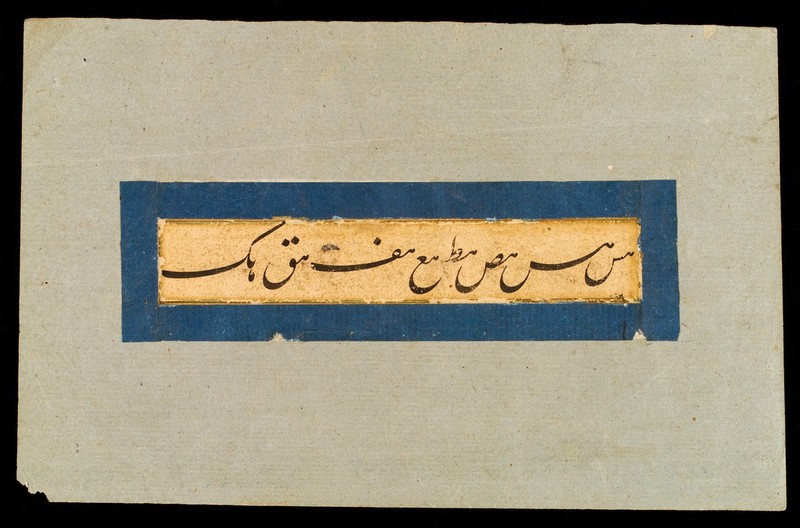 هس هس هص هط هع هف هق هک